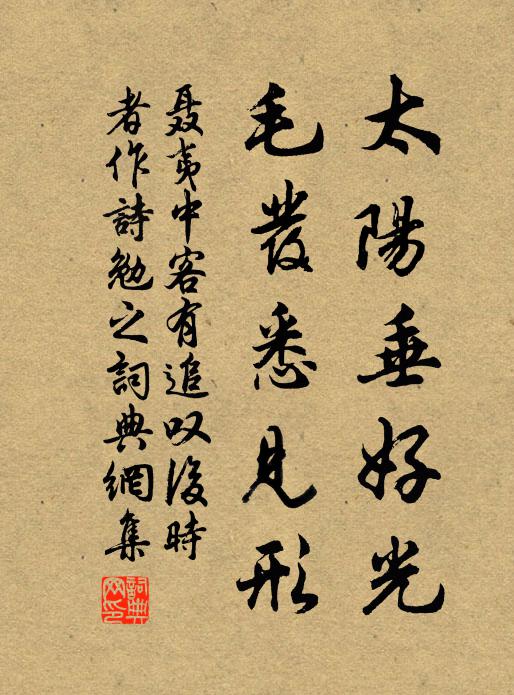 太陽垂好光
毛發悉見形
聶夷中客有追叹後時
者作詩勉之詞典網集
詞典网印